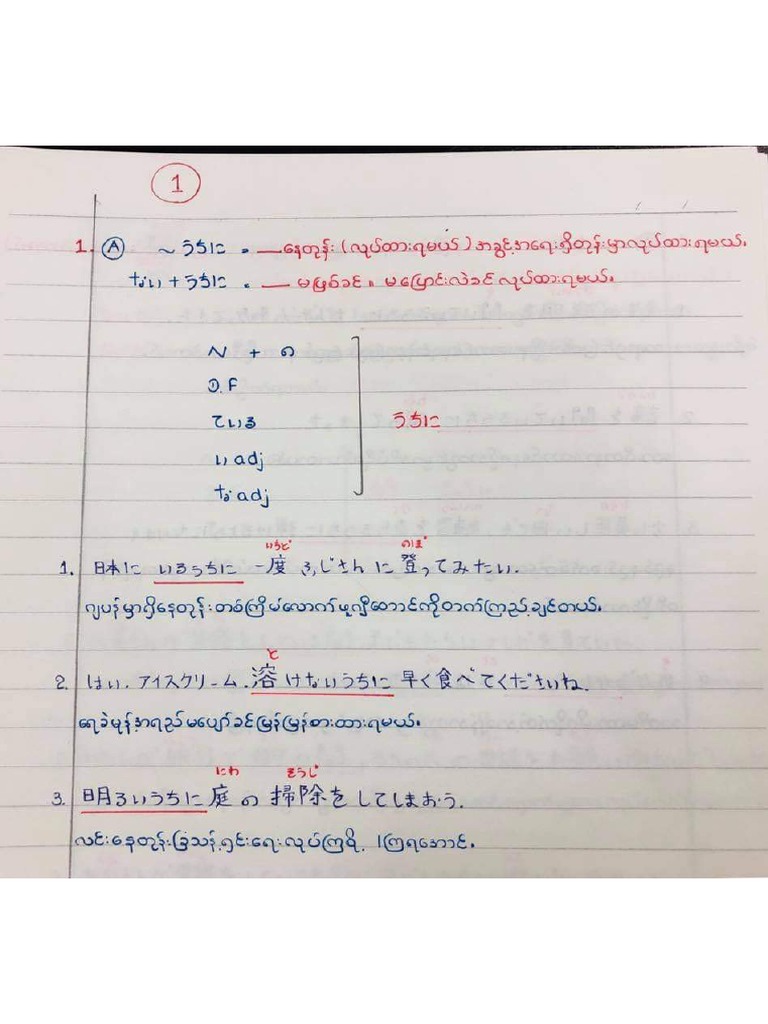 1
1. Ⓐ ~うちに = __နေတုန်း (လုပ်ထားရမယ်) အခွင့်အရေးရှိတုန်းမှာလုပ်ထားရမယ်။
ない+うちに = __ မဖြစ်ခင် ။ မပြောင်းလဲခင် လုပ်ထားရမယ်။
N + の
D.F
ている
い adj
な adj
うちに
いちど のぼ
1. 日本に いるうちに 一度 ふじさんに 登ってみたい.
ဂျပန်မှာရှိနေတုန်းတစ်ကြိမ်လောက်ဖူဂျီတောင်ကိုတက်ကြည့်ချင်တယ်။
と
2. はい. アイスクリーム. 溶けないうちに 早く食べてくださいね.
ရေခဲမုန့်အရည်မပျော်ခင်မြန်မြန်စားထားရမယ်။
にわ そうじ
3. 明るいうちに 庭の 掃除をしてしまおう.
လင်းနေတုန်းခြံသန့်ရှင်းရေးလုပ်ကြရအောင်။